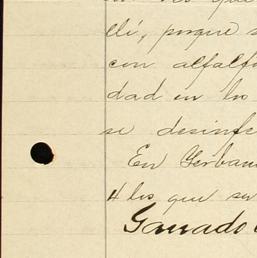 llí, porque s
con alfalf
dad en los
se desinfe
En Gerban
los que se
Ganado